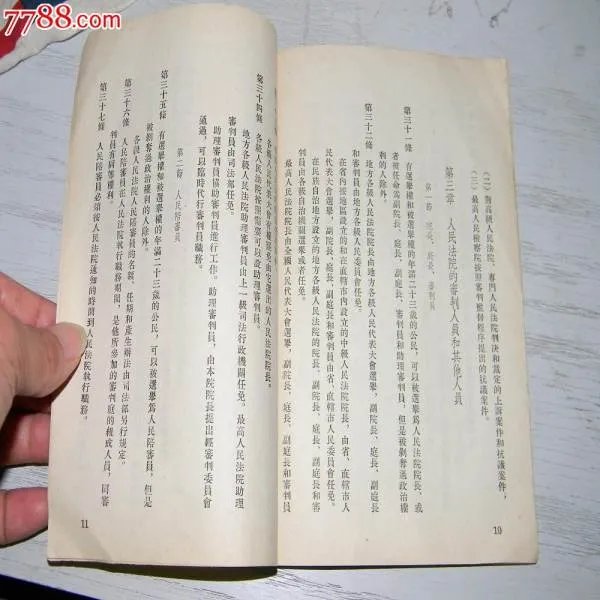 7788.com
(二) 對高級人民法院、專門人民法院判決和裁定的上訴案件和抗議案件,
(三) 最高人民檢察院按照審判監督程序提出的抗議案件。
第三章 人民法院的審判人員和其他人員
第一節 院長、庭長、審判員
第三十一條 有選舉權和被選舉權的年滿二十三歲的公民,可以被選舉爲人民法院院長、或
者被任命爲副院長、庭長、副庭長、審判員和助理審判員,但是被剝奪過政治權
利的人除外。
第三十二條 地方各級人民法院院長由地方各級人民代表大會選舉,副院長、庭長、副庭長
和審判員由地方各級人民委員會任免。
在省內按地區設立的和在直轄市內設立的中級人民法院院長,由省、直轄市人
民代表大會選舉,副院長、庭長、副庭長和審判員由省、直轄市人民委員會任免。
在民族自治地方設立的地方各級人民法院的院長、副院長、庭長、副庭長和審
判員,由各級自治機關選舉或者任免。
最高人民法院院長由全國人民代表大會選舉,副院長、庭長、副庭長和審
10
各級人民代表大會有權罷免由它選出的人民法院院長。
第三十四條 各級人民法院按照需要可以設助理審判員。
地方各級人民法院助理審判員由上一級司法行政機關任免。最高人民法院助理
審判員由司法部任免。
助理審判員協助審判員進行工作。助理審判員,由本院院長提出經審判委員會
通過,可以臨時代行審判員職務。
第二節 人民陪審員
第三十五條 有選舉權和被選舉權的年滿二十三歲的公民,可以被選舉爲人民陪審員,但是
被剝奪過政治權利的人除外。
各級人民法院人民陪審員的名額、任期和產生辦法由司法部另行規定。
第三十六條 人民陪審員在人民法院執行職務期間,是他所參加的審判庭的組成人員,同審
判員有同等權利。
第三十七條 人民陪審員必須按人民法院通知的時間到人民法院執行職務。
11